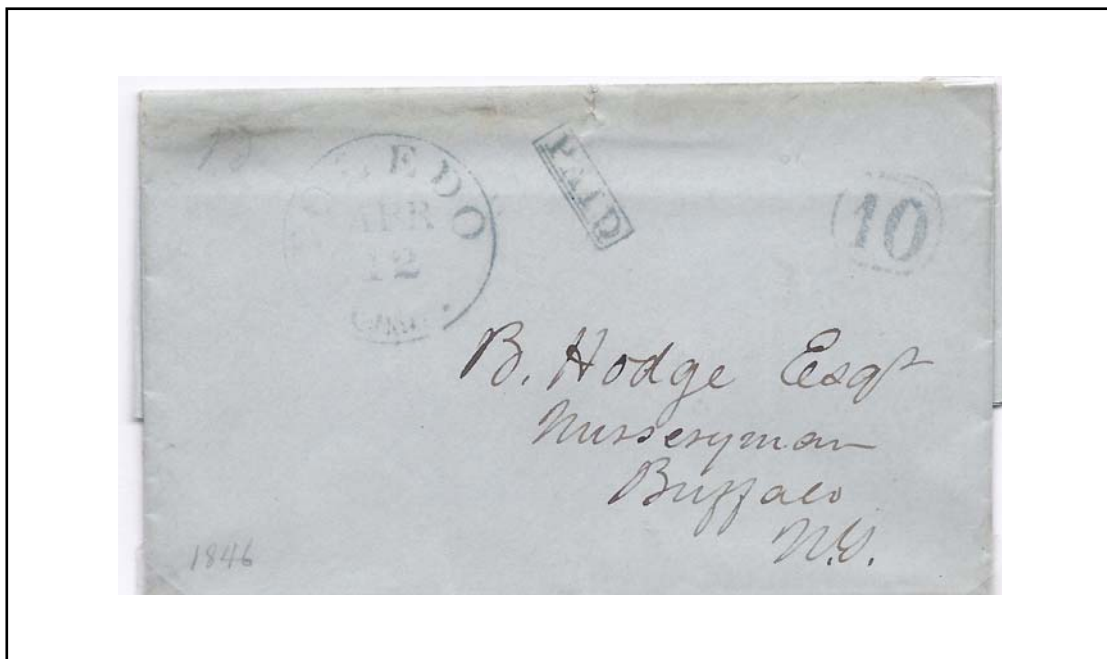 TOLEDO
APR
12
PAID
10
B. Hodge Esqr
Nurseryman
Buffalo
N.Y.
1846